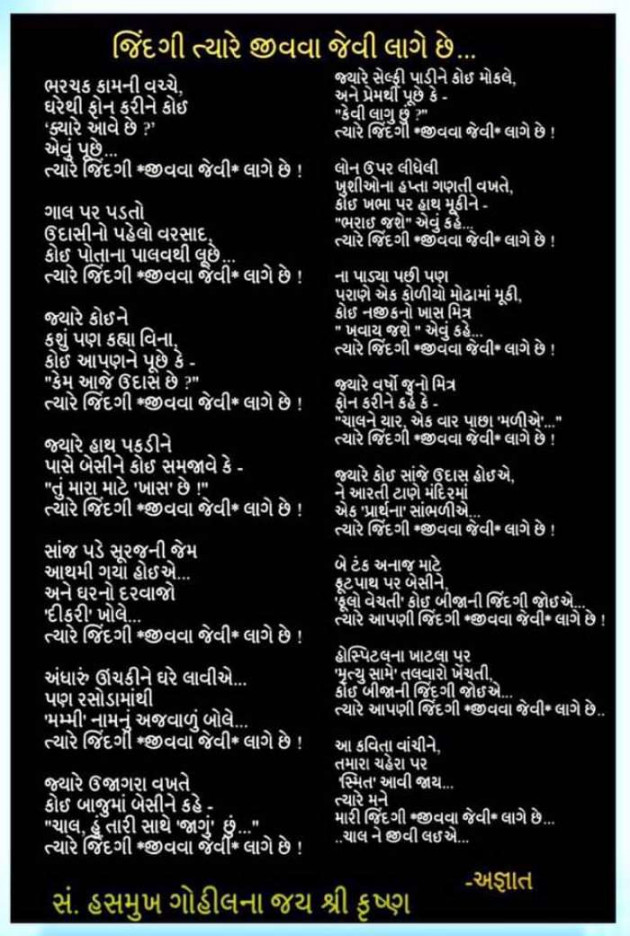 જિંદગી ત્યારે જીવવા જેવી લાગે છે...
ભરચક કામની વચ્ચે,
ઘરેથી ફોન કરીને કોઈ
‘ક્યારે આવે છે ?’
એવું પૂછે...
ત્યારે જિંદગી *જીવવા જેવી* લાગે છે !
ગાલ પર પડતો
ઉદાસીનો પહેલો વરસાદ,
કોઈ પોતાના પાલવથી લૂછે...
ત્યારે જિંદગી *જીવવા જેવી* લાગે છે !
જ્યારે કોઈને
કશું પણ કહ્યા વિના,
કોઈ આપણને પૂછે કે -
"કેમ આજે ઉદાસ છે ?"
ત્યારે જિંદગી *જીવવા જેવી* લાગે છે !
જ્યારે હાથ પકડીને
પાસે બેસીને કોઈ સમજાવે કે -
"તું મારા માટે 'ખાસ' છે !"
ત્યારે જિંદગી *જીવવા જેવી* લાગે છે !
સાંજ પડે સૂરજની જેમ
આથમી ગયા હોઈએ...
અને ઘરનો દરવાજો
'દીકરી' ખોલે...
ત્યારે જિંદગી *જીવવા જેવી* લાગે છે !
અંધારું ઊંચકીને ઘરે લાવીએ...
પણ રસોડામાંથી
'મમ્મી' નામનું અજવાળું બોલે...
ત્યારે જિંદગી *જીવવા જેવી* લાગે છે !
જ્યારે ઉજાગરા વખતે
કોઈ બાજુમાં બેસીને કહે -
"ચાલ, હું તારી સાથે 'જાગું' છું..."
ત્યારે જિંદગી *જીવવા જેવી* લાગે છે !
જ્યારે સેલ્ફી પાડીને કોઈ મોકલે,
અને પ્રેમથી પૂછે કે -
"કેવી લાગુ છું ?"
ત્યારે જિંદગી *જીવવા જેવી* લાગે છે !
લોન ઉપર લીધેલી
ખુશીઓના હપ્તા ગણતી વખતે,
કોઈ ખભા પર હાથ મૂકીને -
"ભરાઈ જશે" એવું કહે...
ત્યારે જિંદગી *જીવવા જેવી* લાગે છે !
ના પાડ્યા પછી પણ
પરાણે એક કોળીયો મોઢામાં મૂકી,
કોઈ નજીકનો ખાસ મિત્ર
" ખવાય જશે " એવું કહે...
ત્યારે જિંદગી *જીવવા જેવી* લાગે છે !
જ્યારે વર્ષો જુનો મિત્ર
ફોન કરીને કહે કે -
"ચાલને યાર, એક વાર પાછા 'મળીએ'..."
ત્યારે જિંદગી *જીવવા જેવી* લાગે છે !
જ્યારે કોઈ સાંજે ઉદાસ હોઈએ,
ને આરતી ટાણે મંદિરમાં
એક 'પ્રાર્થના' સાંભળીએ...
ત્યારે જિંદગી *જીવવા જેવી* લાગે છે !
બે ટંક અનાજ માટે
ફૂટપાથ પર બેસીને,
'ફૂલો વેચતી' કોઈ બીજાની જિંદગી જોઈએ...
ત્યારે આપણી જિંદગી *જીવવા જેવી* લાગે છે !
હોસ્પિટલના ખાટલા પર
'મૃત્યુ સામે' તલવારો ખેંચતી,
કોઈ બીજાની જિંદગી જોઈએ...
ત્યારે આપણી જિંદગી *જીવવા જેવી* લાગે છે..
આ કવિતા વાંચીને,
તમારા ચહેરા પર
'સ્મિત' આવી જાય...
ત્યારે મને
મારી જિંદગી *જીવવા જેવી* લાગે છે...
..ચાલ ને જીવી લઈએ...
-અજ્ઞાત
સં. હસમુખ ગોહીલના જય શ્રી કૃષ્ણ